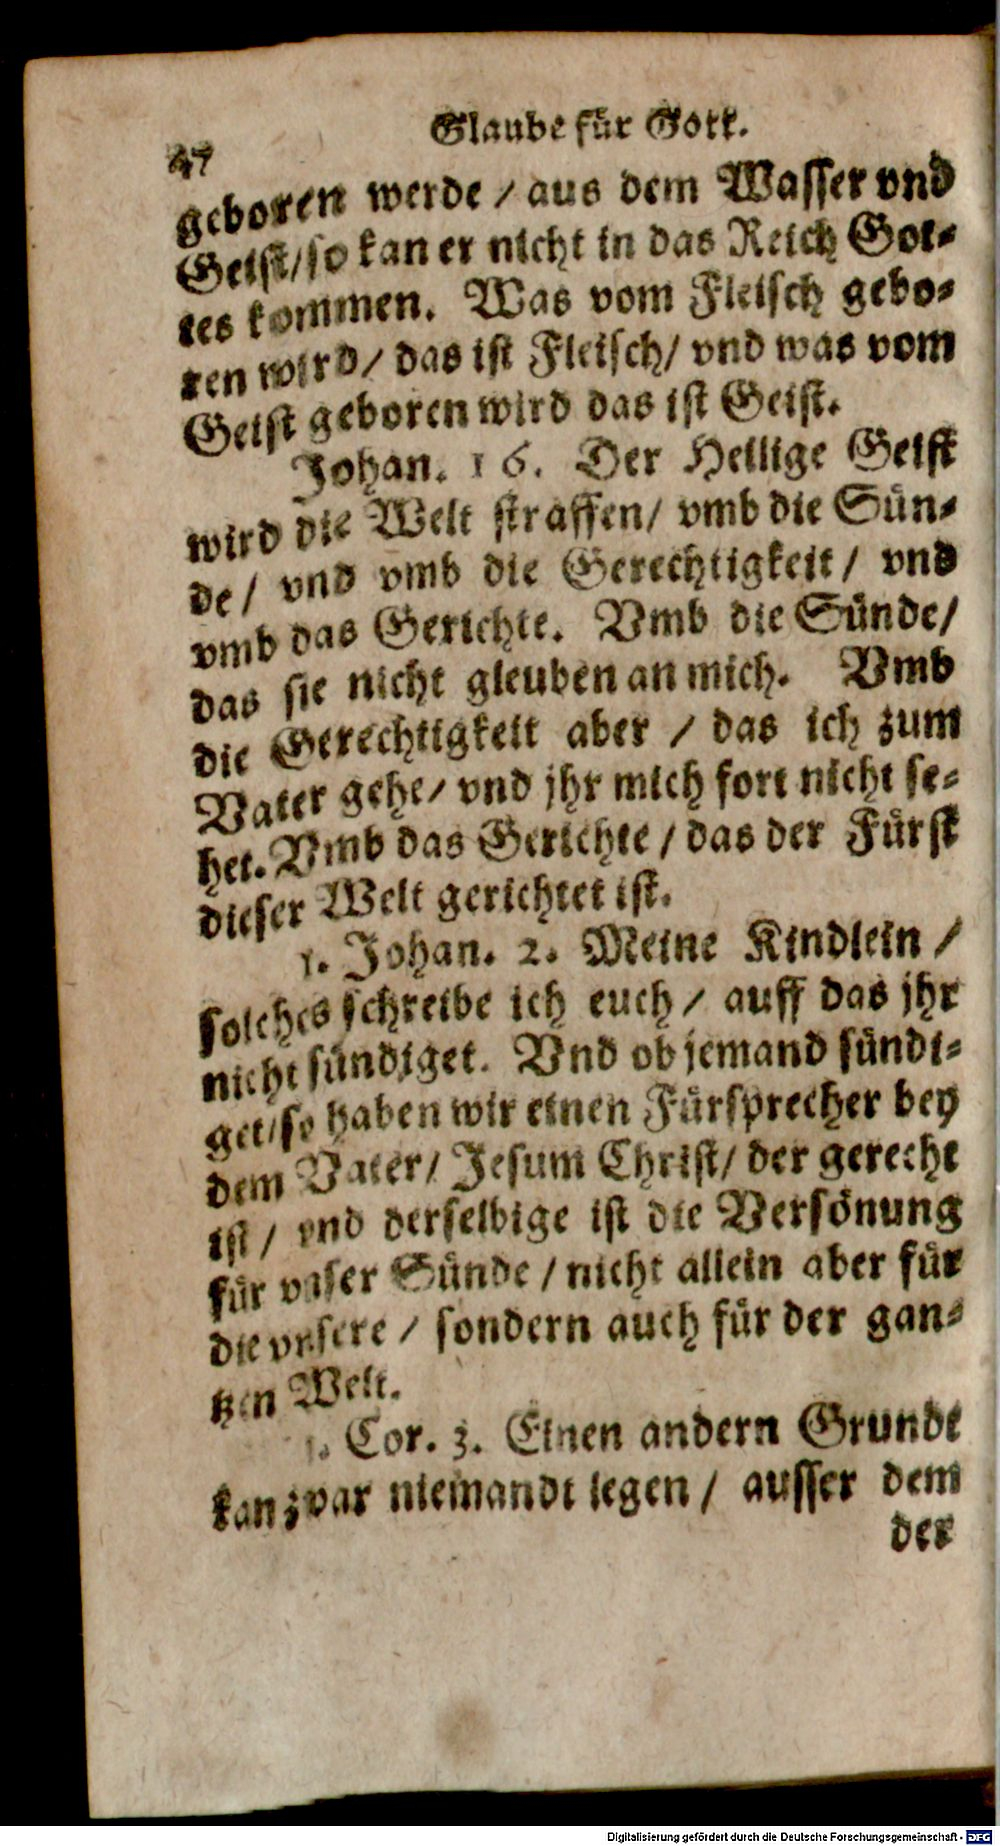 Glaube für Gott.
47
geboren werde / aus dem Wasser vnd
Geist/ so kan er nicht in das Reich Got-
tes kommen. Was vom Fleisch gebo-
ren wird/ das ist Fleisch/ vnd was vom
Geist geboren wird das ist Geist.
Johan. 16. Der Heilige Geist
wird die Welt straffen/ vmb die Sün-
de/ vnd vmb die Gerechtigkeit/ vnd
vmb das Gerichte. Vmb die Sünde/
das sie nicht gleuben an mich. Vmb
die Gerechtigkeit aber / das ich zum
Vater gehe/ vnd jhr mich fort nicht se-
het. Vmb das Gerichte / das der Fürst
dieser Welt gerichtet ist.
1. Johan. 2. Meine Kindlein /
solches schreibe ich euch / auff das jhr
nicht sündiget. Vnd ob jemand sündi-
get/ so haben wir einen Fürsprecher bey
dem Vater/ Jesum Christ/ der gerecht
ist / vnd derselbige ist die Versönung
für vnser Sünde / nicht allein aber für
die vnsere / sondern auch für der gan-
tzen Welt.
1. Cor. 3. Einen andern Grundt
kan zwar niemandt legen / ausser dem
der
Digitalisierung gefördert durch die Deutsche Forschungsgemeinschaft - DFG